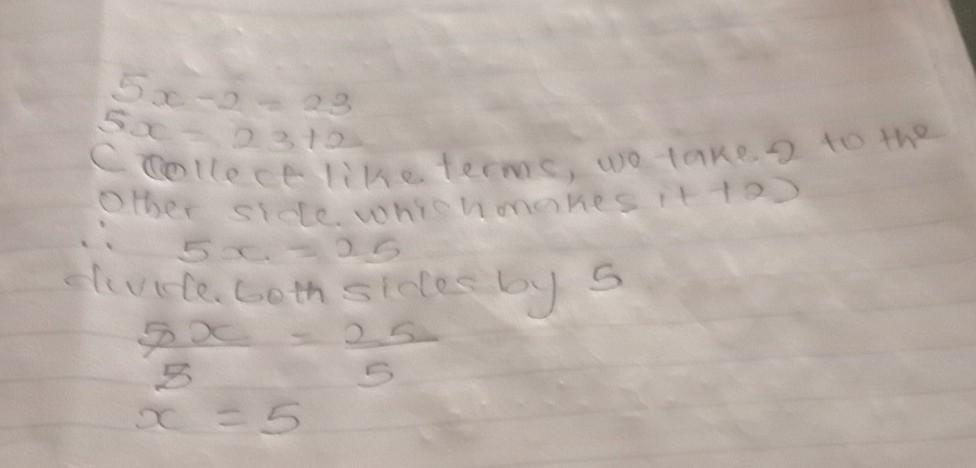 5x - 2 = 23
5x = 23+2
( Collect like terms, we take 2 to the
other side. which makes it +2)
∴ 5x = 25
divide both sides by 5
5x/5 = 25/5
x = 5